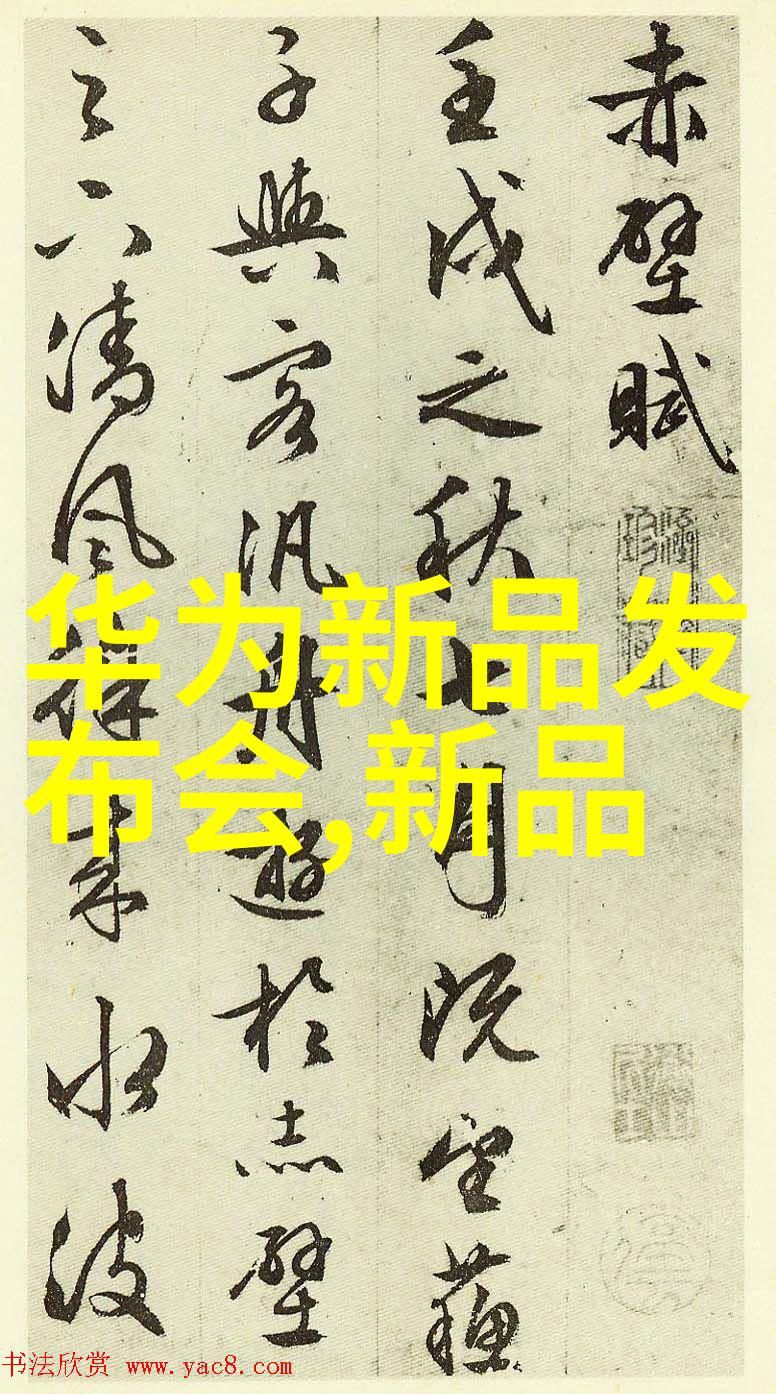 赤壁賦
壬戌之秋七月既望蘇
子與客汎舟遊於赤壁
之下清風徐來水波
华为新品发
布会,新品
书法欣赏 www.yac8.com